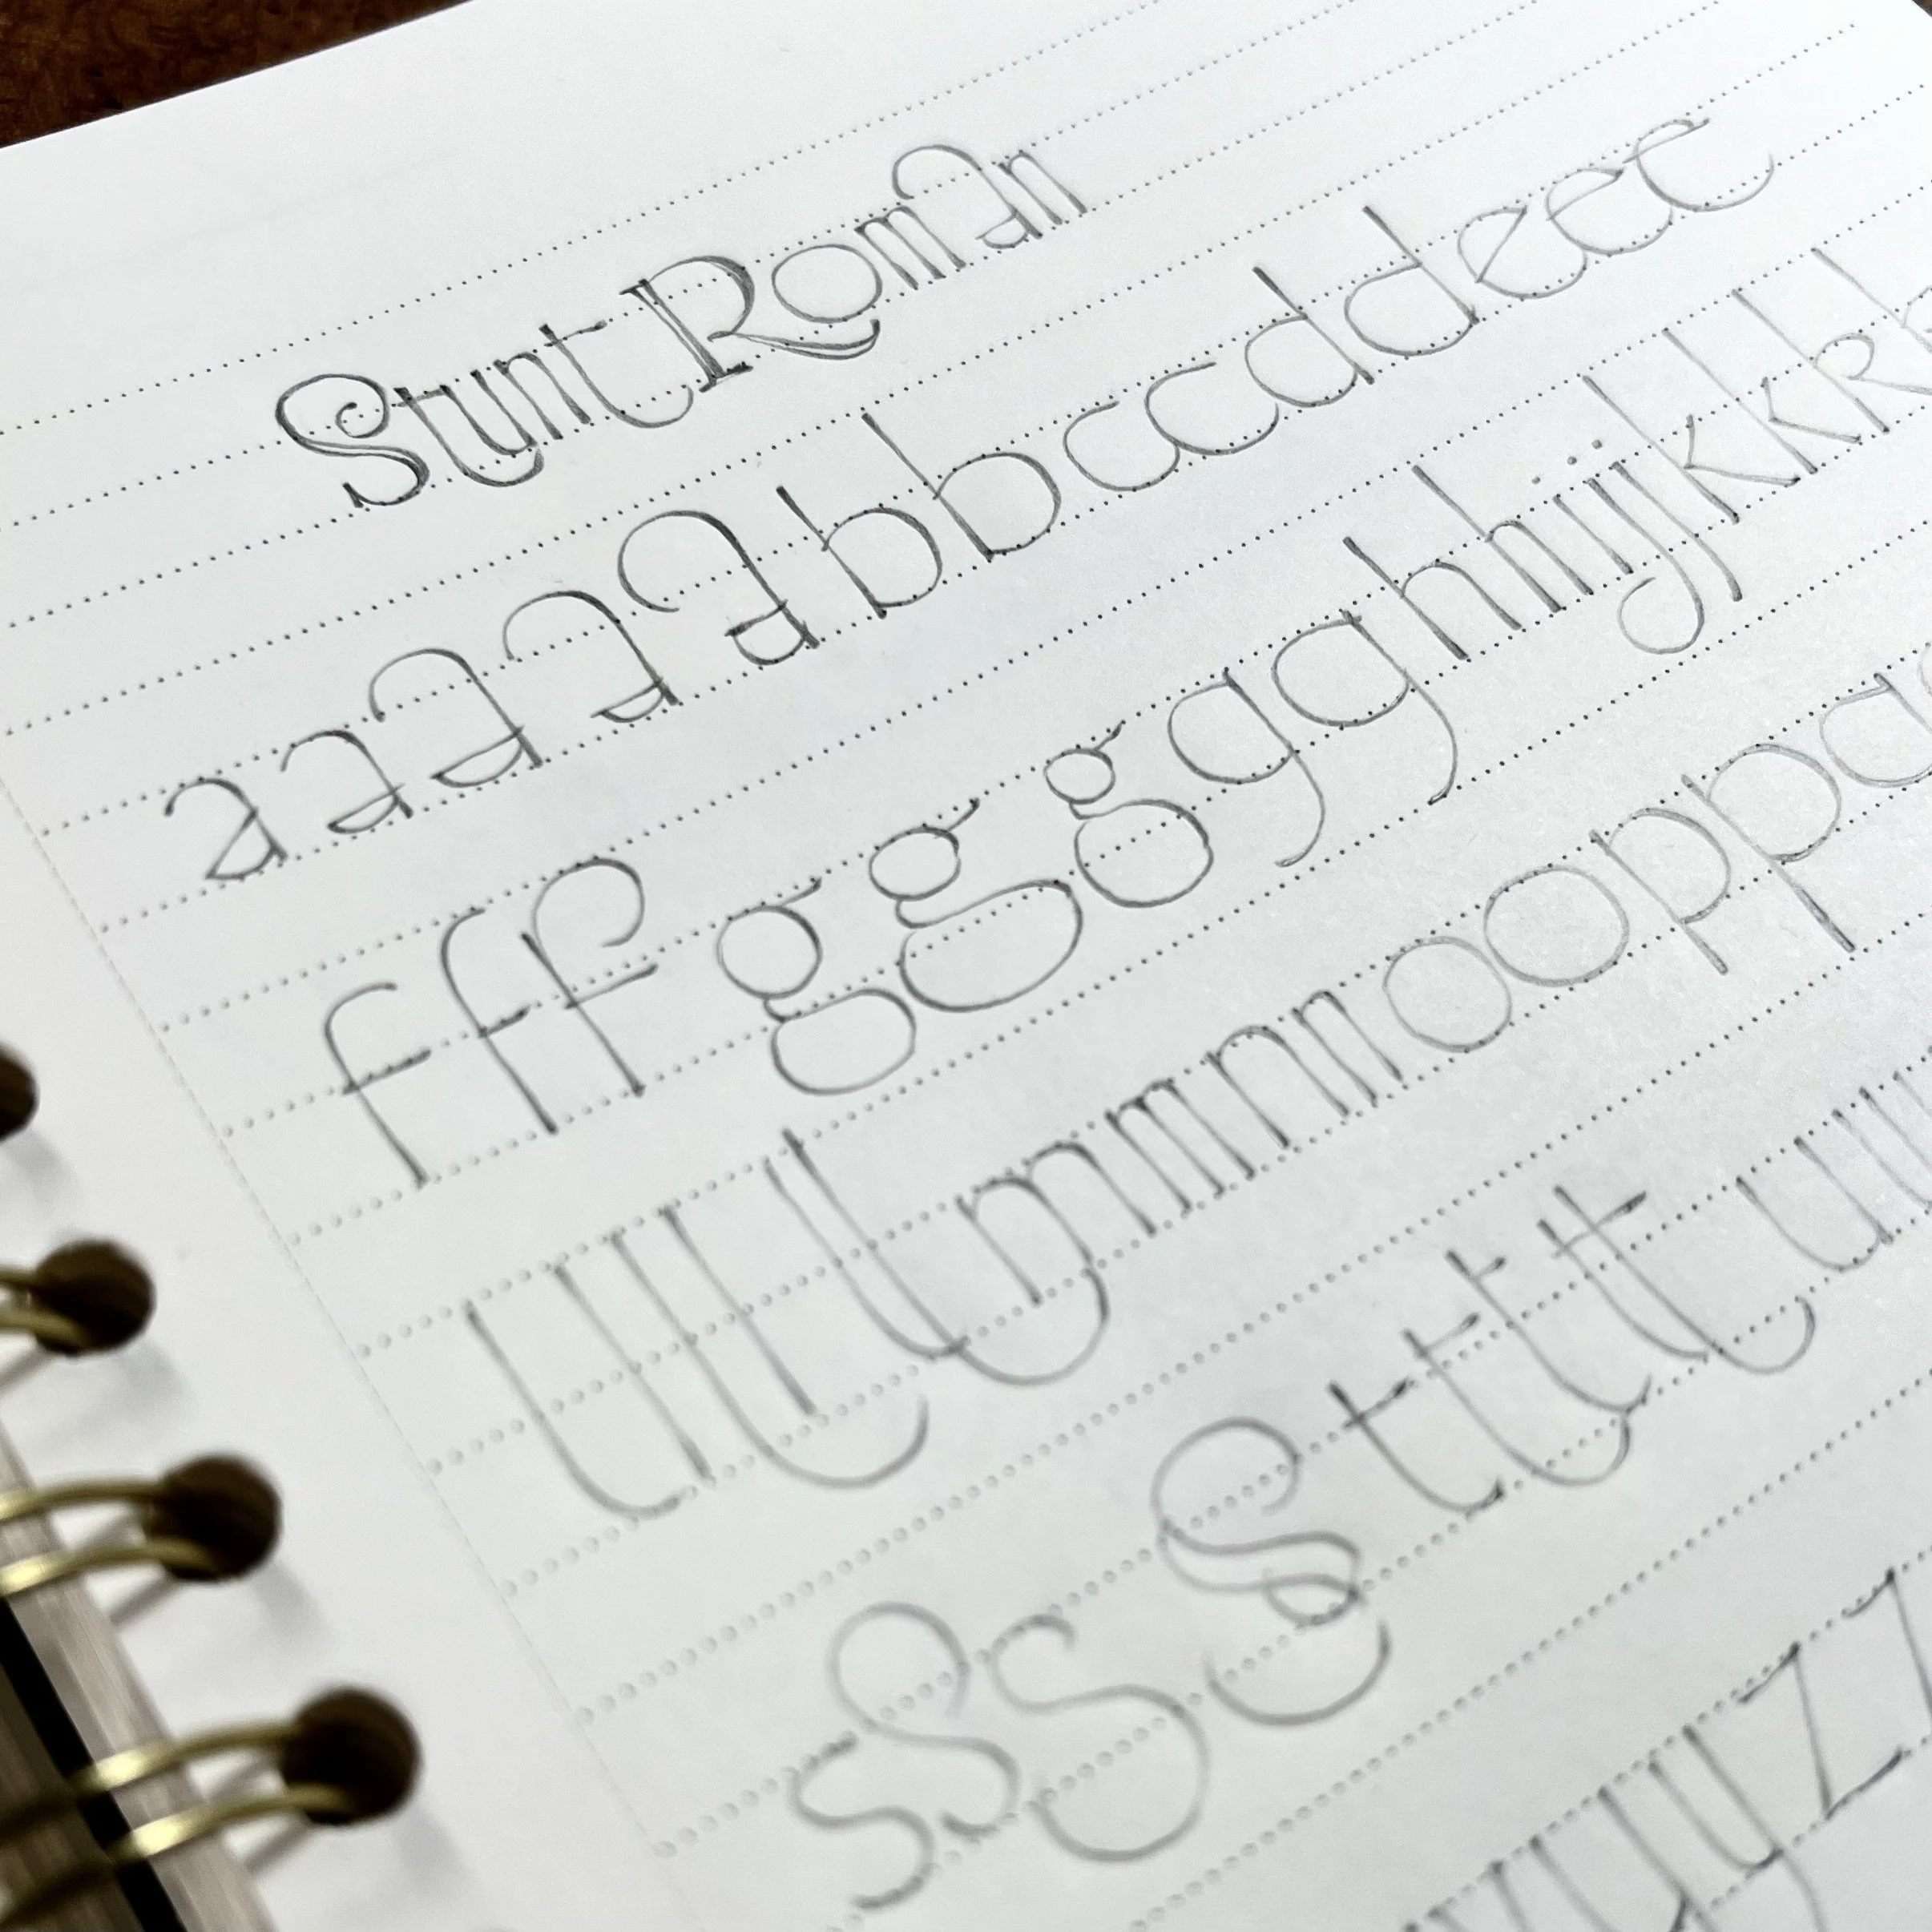 Stunt Roman
a a a a a b b c c d d e e e
f f f g g g g g h h i j j k k k
l l l l m m n n o o p p
s s s s t t t t u u
y y z z